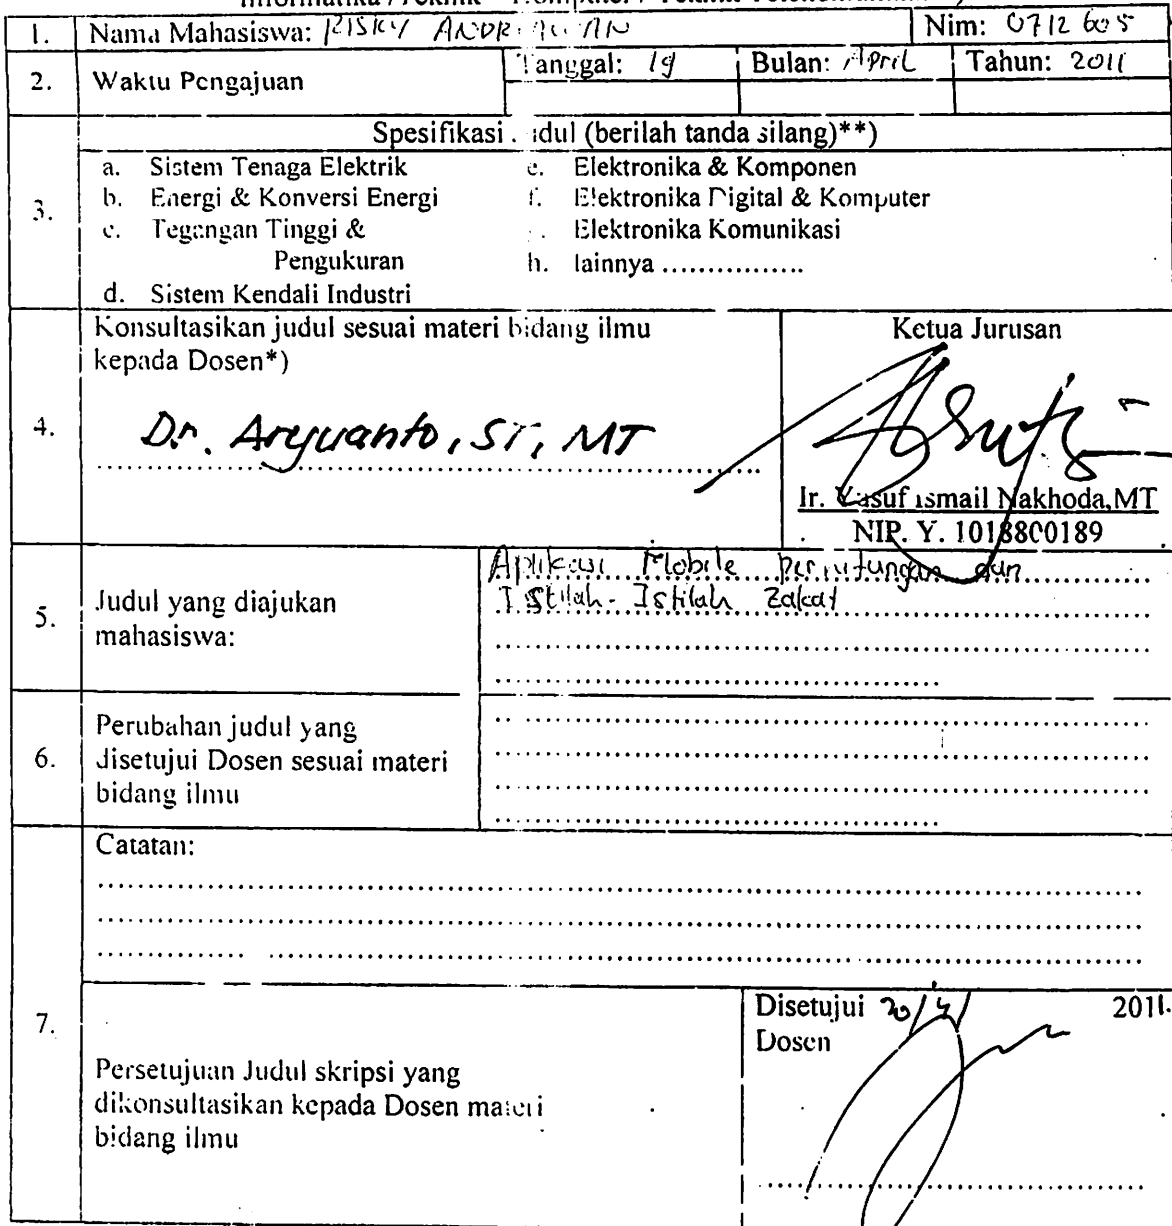 1. Nama Mahasiswa: RISKY Nim: 0712605
2. Waktu Pengajuan Tanggal: 19 Bulan: April Tahun: 2011
3. Spesifikasi Judul (berilah tanda silang)**)
a. Sistem Tenaga Elektrik
b. Energi & Konversi Energi
c. Tegangan Tinggi &
Pengukuran
d. Sistem Kendali Industri
e. Elektronika & Komponen
f. Elektronika Digital & Komputer
Elektronika Komunikasi
h. lainnya ................
4. Konsultasikan judul sesuai materi bidang ilmu
kepada Dosen*)
Dr. Aryuanto, ST, MT
Ketua Jurusan
Ir. Yusuf Ismail Nakhoda, MT
NIP. Y. 1018800189
5. Judul yang diajukan
mahasiswa:
Aplikasi Mobile dan
Istilah-Istilah Zakat
6. Perubahan judul yang
disetujui Dosen sesuai materi
bidang ilmu
7. Catatan:
Persetujuan Judul skripsi yang
dikonsultasikan kepada Dosen materi
bidang ilmu
Disetujui 20/4/ 2011
Dosen